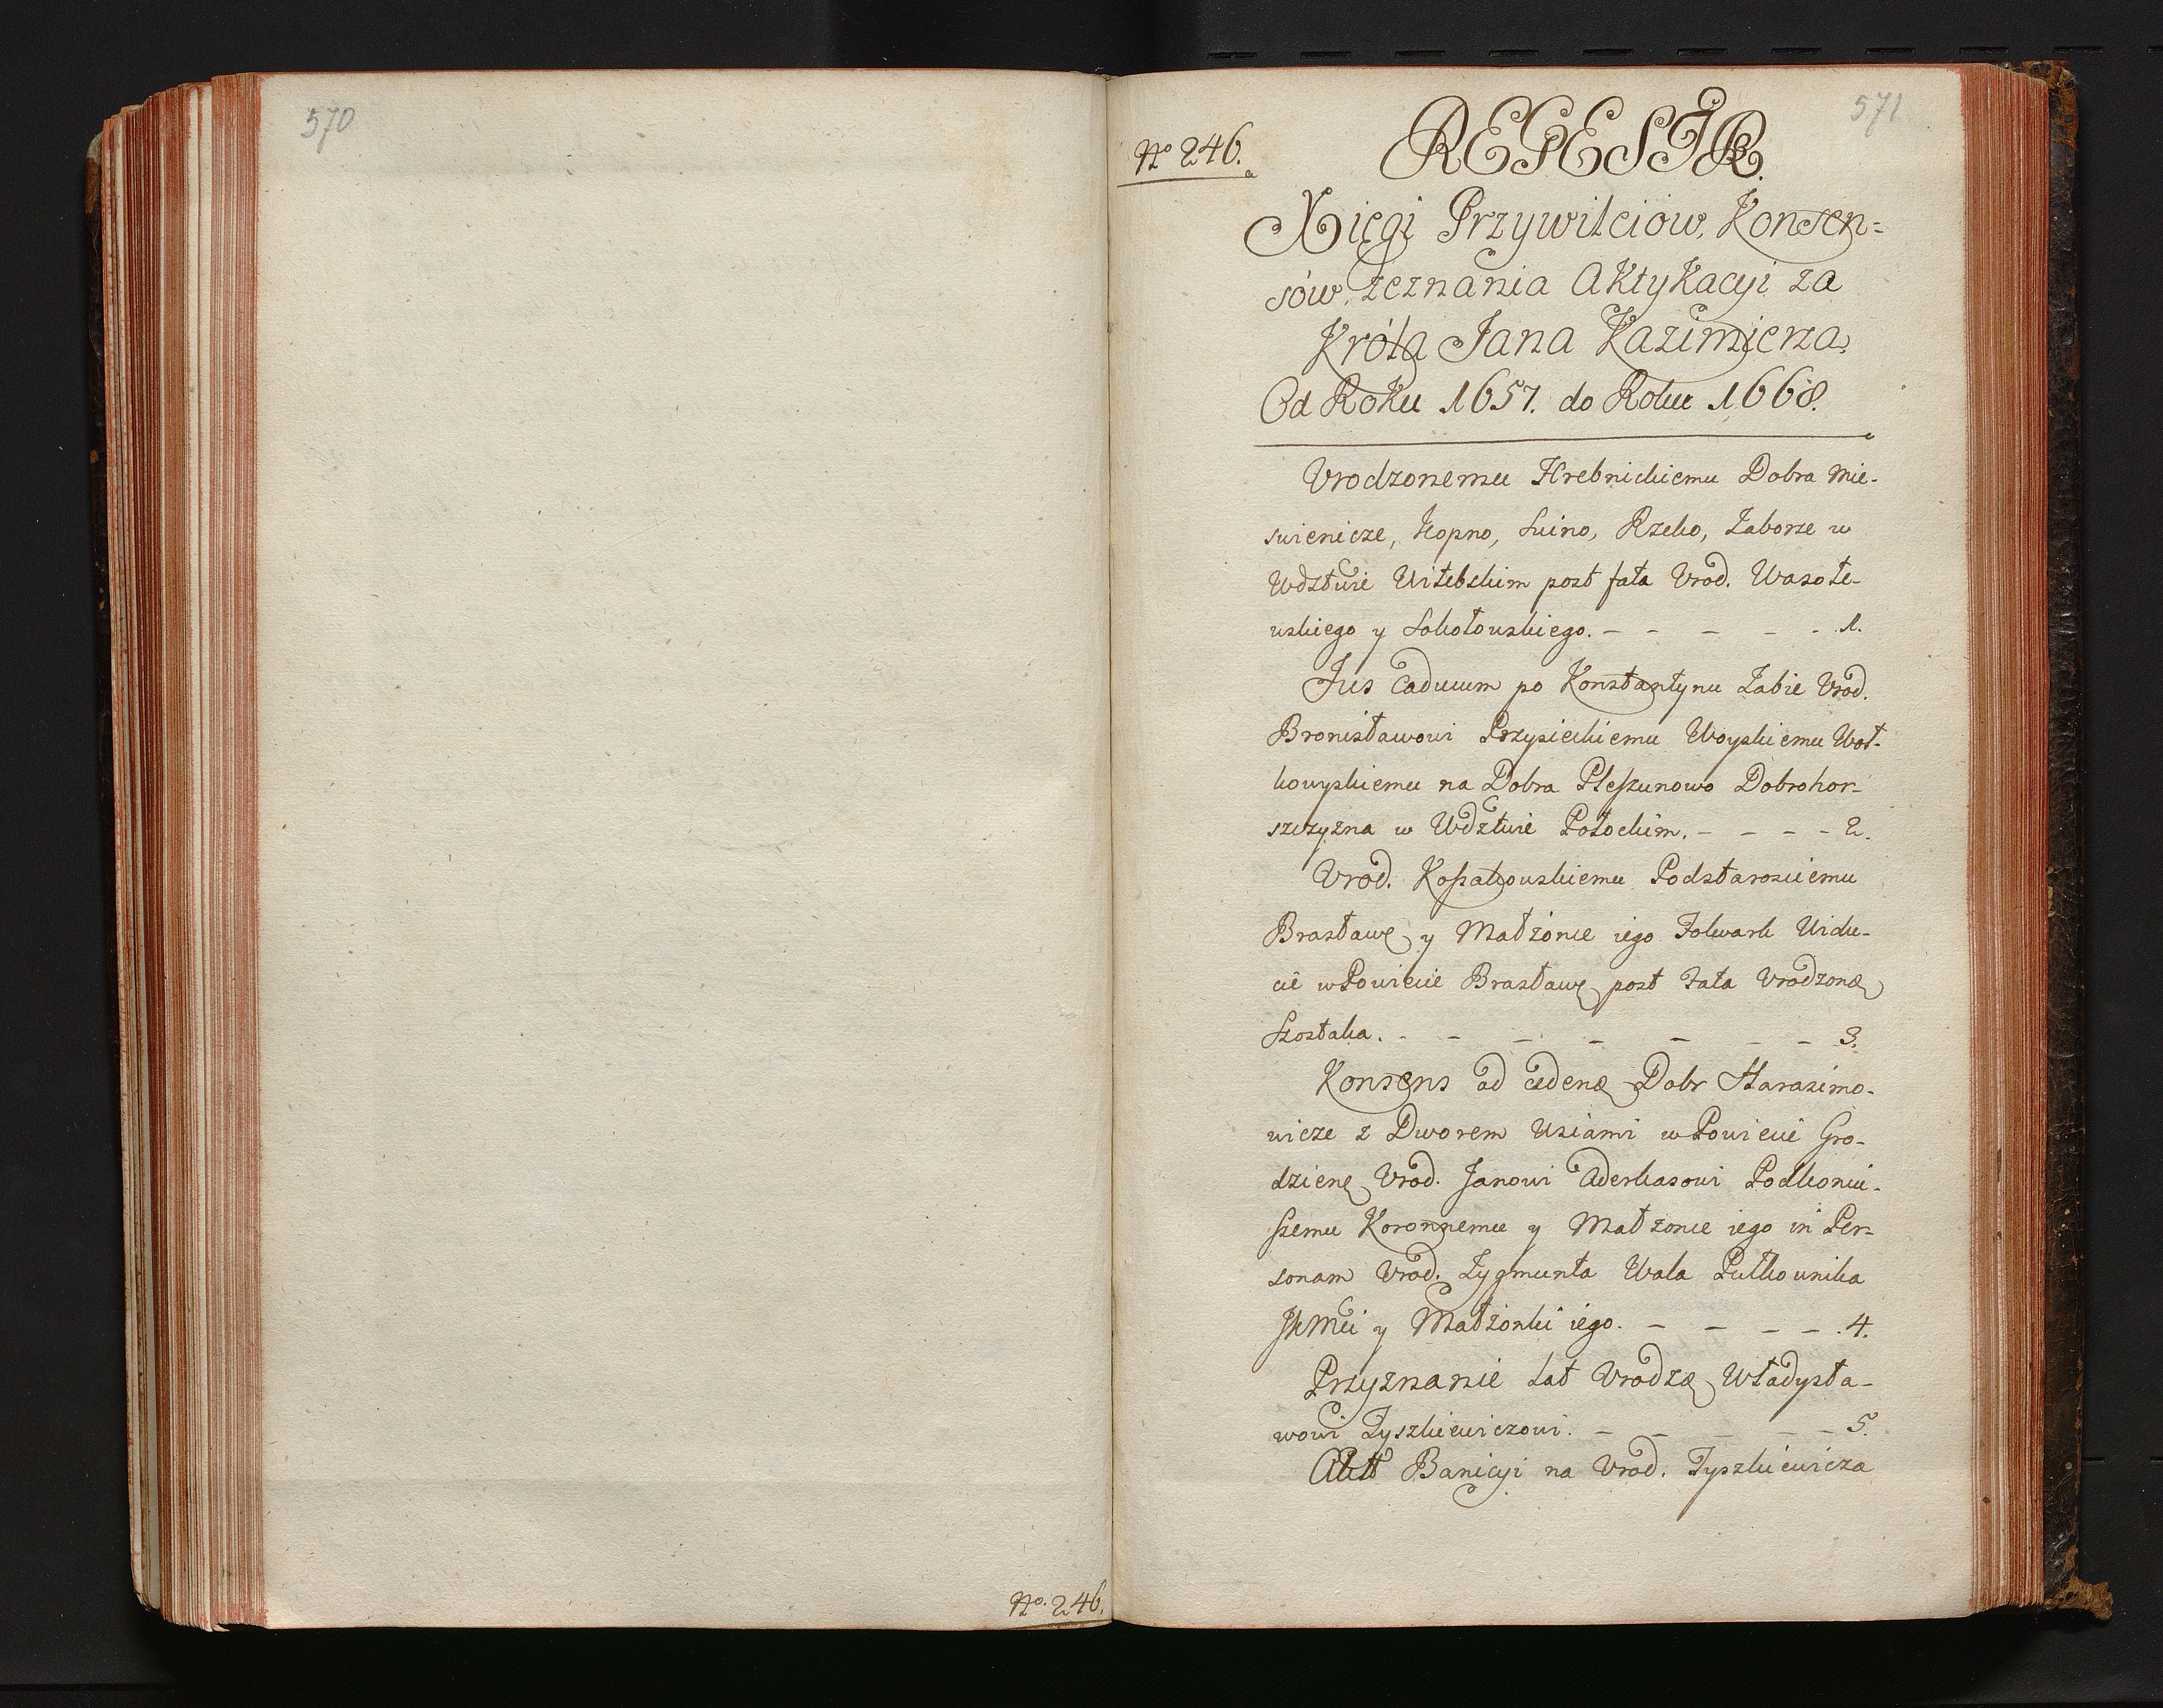 570
No. 246.
571
No 246.
REGESTR.
Xięgi Przywileiow, Konsen=
sów, Zeznania Aktykacyi za
Króla Jana Kazimierza.
Od Roku 1657. do Roku 1668.
Vrodzonemu Hrebnickiemu Dobra Mie-
swienicze, Kopno, Suino, Rzeko, Zaborze w
Wdztwie Witebskim post fata Vrod. Wasole-
wskiego y Sokołowskiego. - - - - - 1.
Jus Caducum po Konstantynu Zabie Vrod.
Bronisławowi Przysieckiemu Woyskiemu Woł-
kowyskiemu na Dobra Pleszunowo Dobrohor-
szczyzna w Wdztwie Połockim. - - - - 2.
Vrod. Kossakowskiemu Podstarosciemu
Brasławę y Małżonce iego Folwark Widu-
cie w Powiecie Brasławę post Fata Vrodzonę
Szostaka. - - - - - - - 3.
Konsens ad cedenę Dobr Harasimo-
wicze z Dworem Usiami w Powiecie Gro-
dzienę Vrod. Janowi Aderkasowi Podkoniu-
szemu Koronnemu y Małzonce iego in Per-
sonam Vrod. Zygmunta Wala Pułkownika
JKMci y Małżonki iego. - - - - 4.
Przyznanie Lat Vrodzę Władysła-
wowi Tyszkiewiczowi. - - - - - 5.
Aktt Banicyi na Vrod. Tyszkiewicza